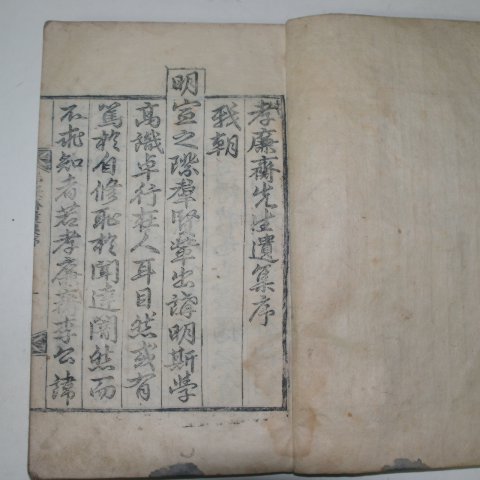 孝廉齋先生遺集序
我朝
明宣之際羣賢輩出講明斯学
高識卓行在人耳目然或有
篤於自修恥於聞達闇然而
不求知者若孝廉齋李公諱